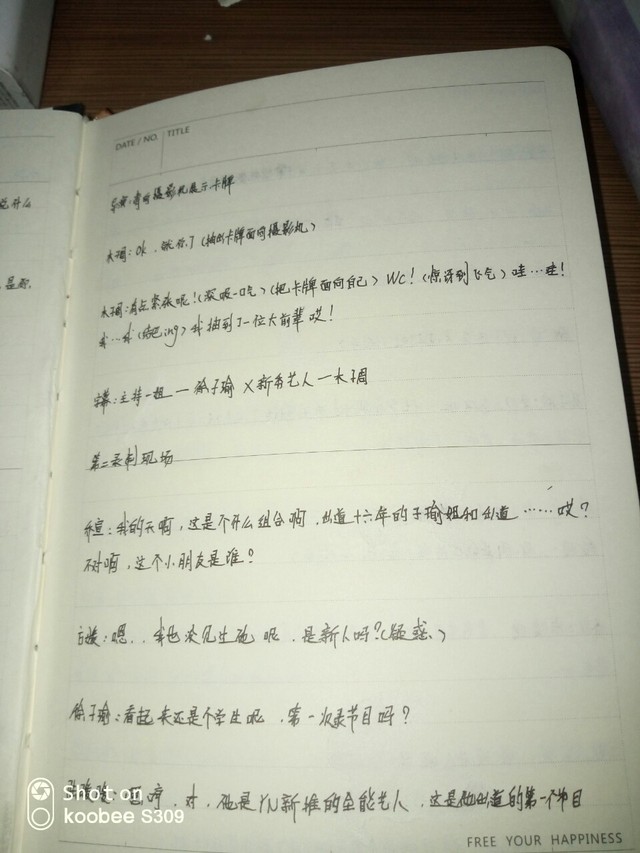 DATE / NO. TITLE
导演:请向摄影机展示卡牌
木子调:Ok,现在了(抽出卡牌面向摄影机)
木子调:有点紧张呢!(深吸一口气)(把卡牌面向自己)WC!(惊讶到飞气)哇…哇!
我…我(结巴ing)我抽到了一位大前辈哎!
字幕:主持一姐—徐子瑜×新秀艺人—木子调
第二录制现场
乔宣:我的天啊,这是个什么组合啊,出道十六年的子瑜姐和出道……哎?
不对啊,这个小朋友是谁?
嗯..我也没见过她呢,是新人吗?(疑惑.)
徐子瑜:看起来还是个学生呢,第一次录节目吗?
对,她是YN新推的全能艺人,这是她出道的第一个节目
说什么
是那.
FREE YOUR HAPPINESS
Shot on
koobee S309